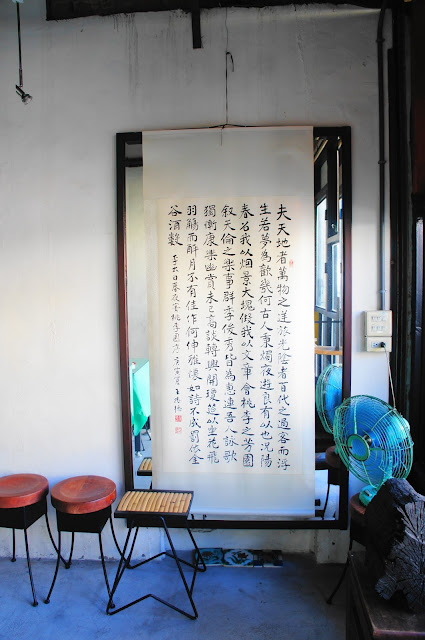 夫天地者萬物之逆旅光陰者百代之過客而浮
生若夢為歡幾何古人秉燭夜遊良有以也況陽
春召我以烟景大塊假我以文章會桃李之芳園
叙天倫之樂事群季俊秀皆為惠連吾人詠歌
獨慚康樂幽賞未已高談轉開瓊筵以坐花飛
羽觴而醉月不有佳作何伸雅懷如詩不成罰依金
谷酒數 李太白春夜宴桃李園序 庚寅夏